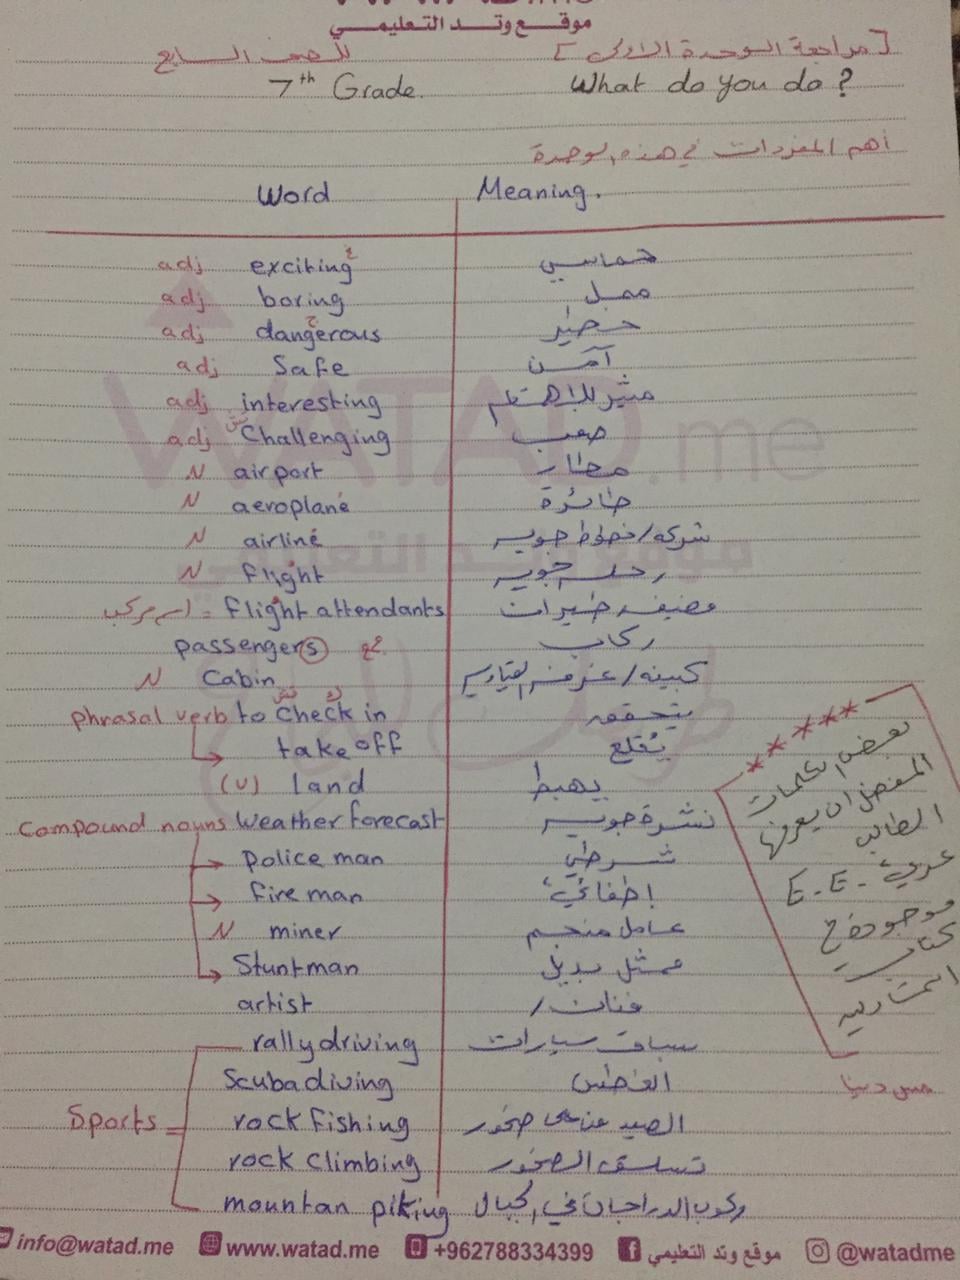 موقع وتد التعليمي
[مراجعة الوحدة الاولى] للصف السابع
What do you do? 7th Grade.
أهم المفردات في هذه الوحدة
Word Meaning.
adj exciting غ حماسي
adj boring ممل
adj dangerous ج خطير
adj Safe آمن
adj interesting مثير للإهتمام
adj Challenging تش صعب
N airport مطار
N aeroplane طائرة
N airline شركه/خطوط جويه
N flight رحله جويه
اسم مركب = flight attendants مضيفه طيران
passengers جمع ركاب
N Cabin كبينه/غرفه القياده
phrasal verb to check in تش ك يتحقق
take off يُقلع
(v) land يهبط
Compound nouns weather forecast نشرة جويه
police man شرطي
fire man إطفائي
N miner عامل منجم
Stuntman ممثل بديل
artist فنان/
rally driving سباق سيارات
Scuba diving الغطس
Sports = rock fishing الصيد عن على صخور
rock climbing تسلق الصخور
mountan piking ركوب الدراجات في الجبال
*****
بعض الكلمات
المفضل ان يعرفها
الطالب
عربي - E-E
موجود في
كتاب
التمارين
مس دينا
info@watad.me www.watad.me +962788334399 موقع وتد التعليمي @watadme
WATAD.me
موقع وتد التعليمي